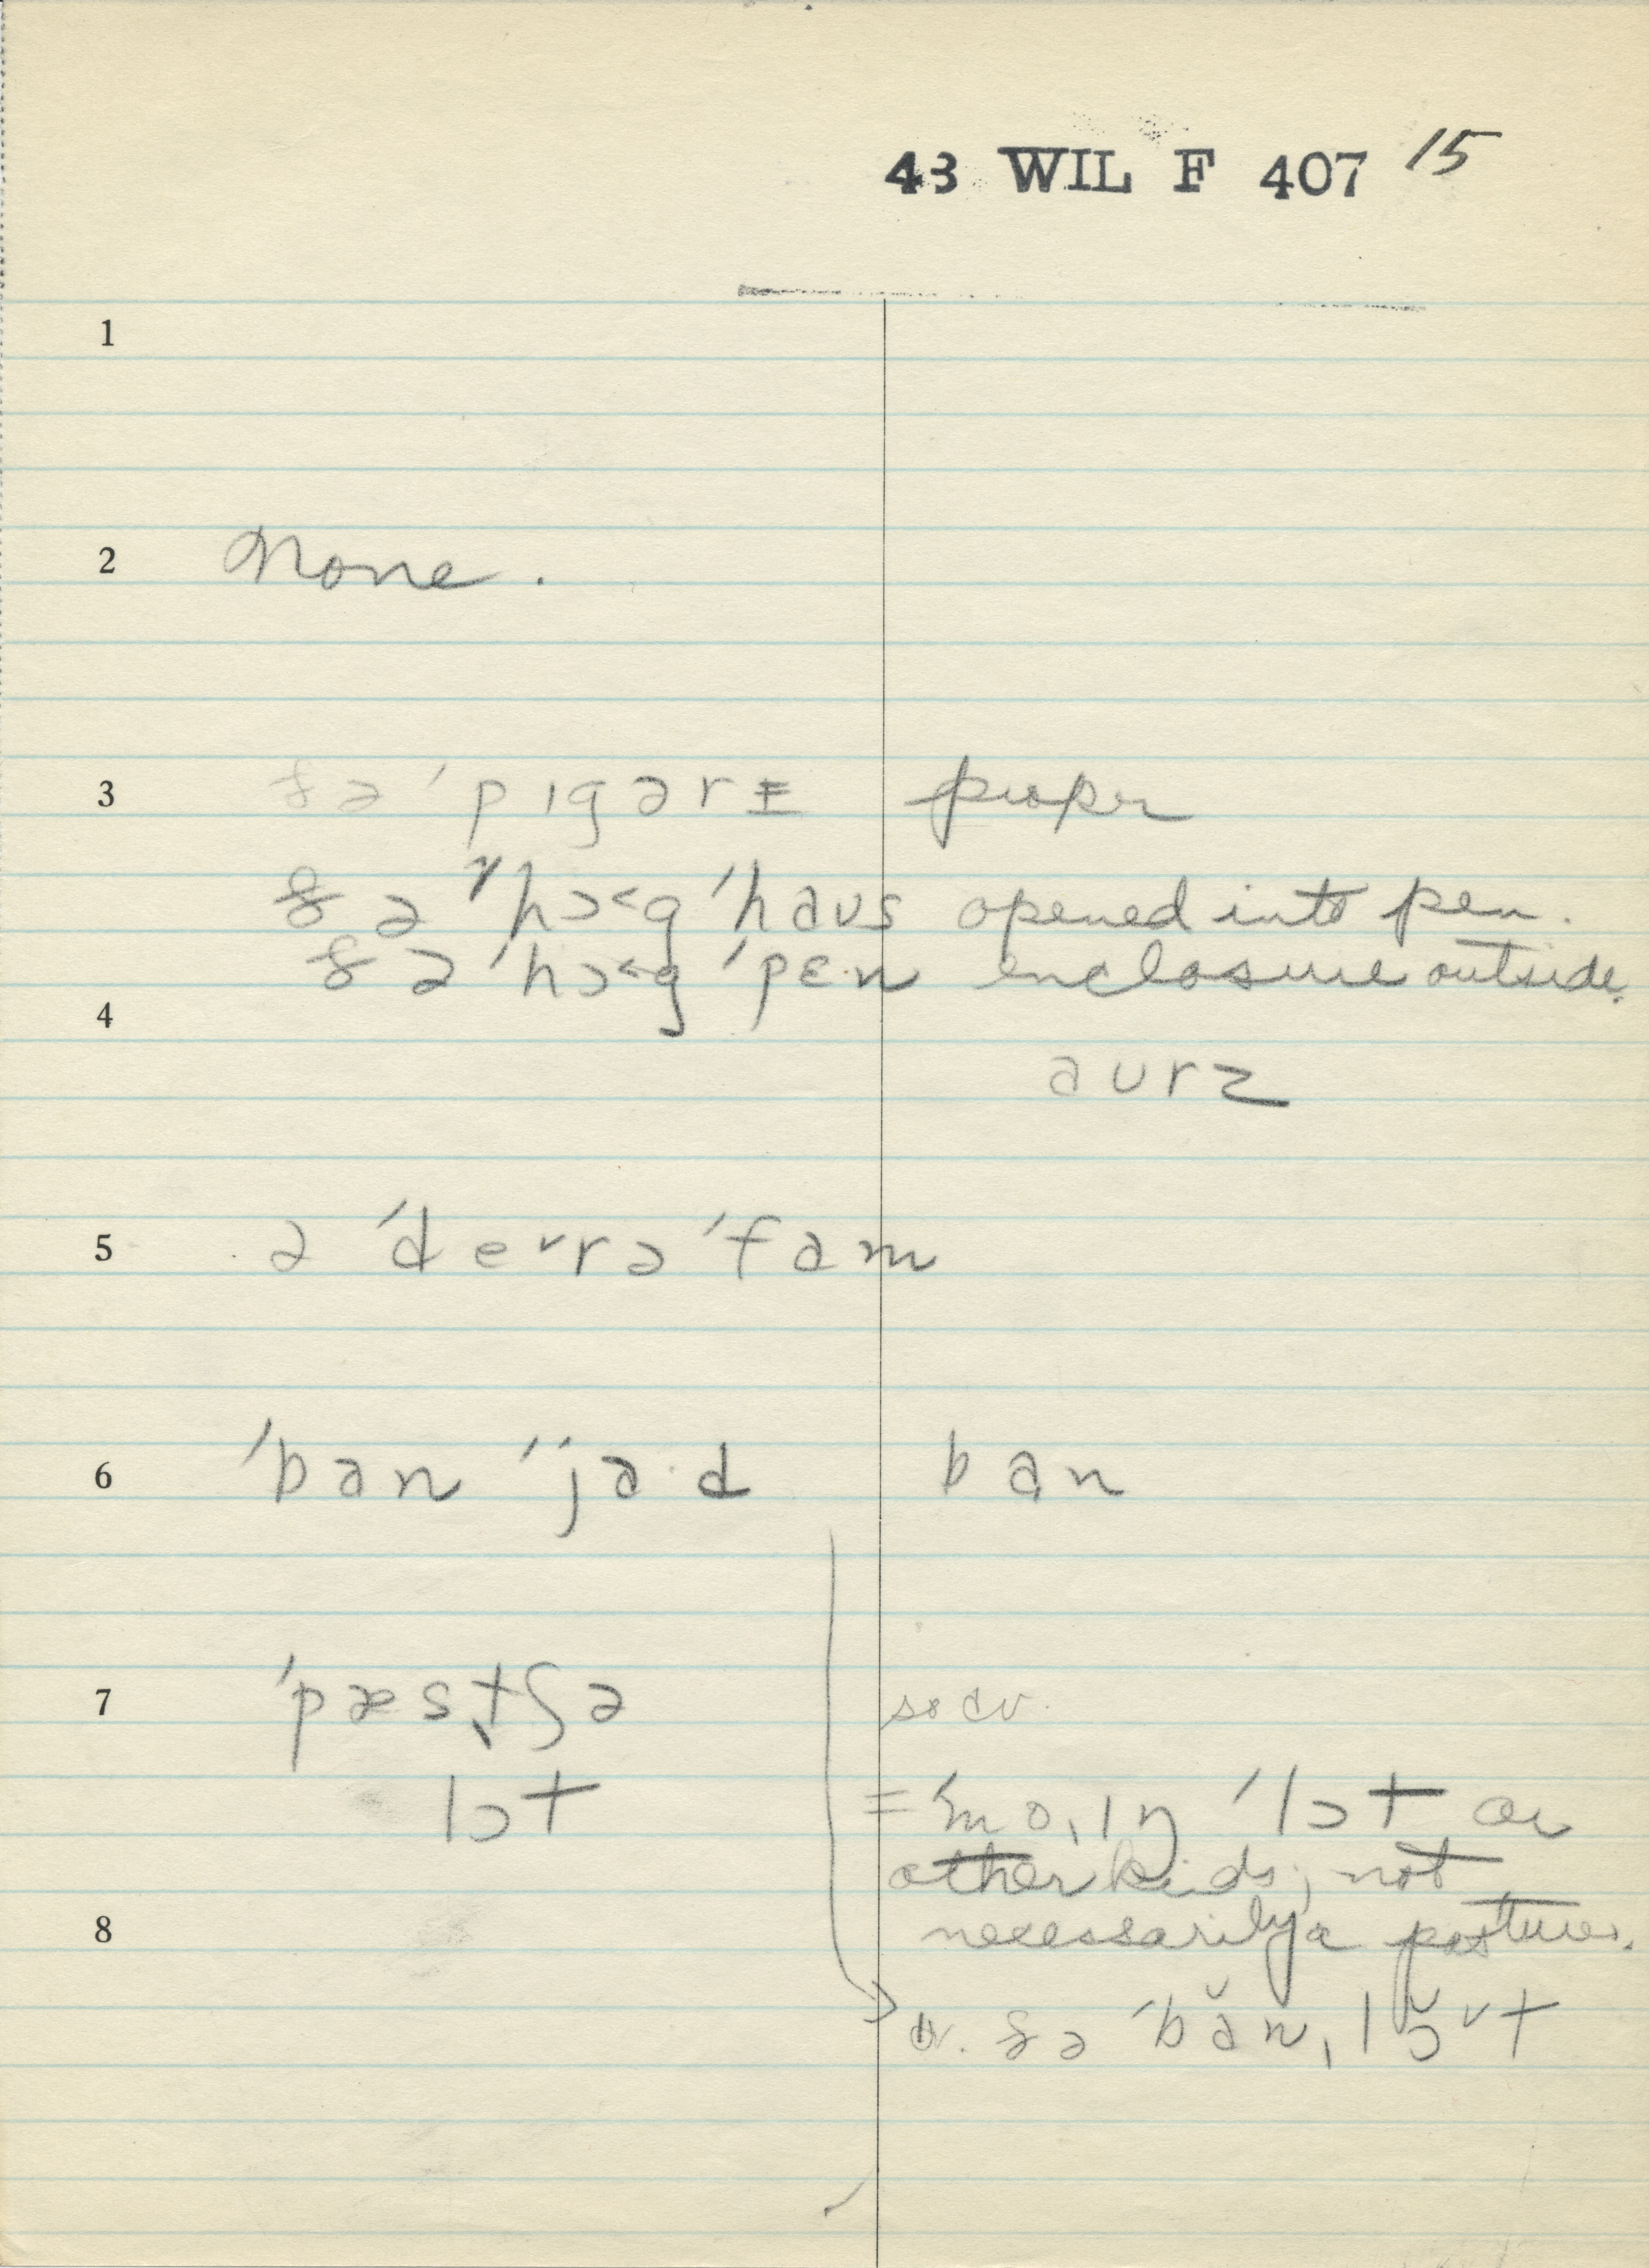 43 WIL F 407 15
1
2 None.
3 ðə ˈpɪgərɪ proper
ðə ˈhɔ˂g ˈhaus opened into pen.
ðə ˈhɔ˂g ˈpɛ·n enclosure outside.
4
aurz
5 ə ˈdeᵛrəˈfam
6 ˈban ˈja·d ban
7 ˈpæstʃə
lɔt = ˈmoˌɪŋ ˈlɔt or
other kids; not
8 necessarily a pasture.
ðə ˈbănˌlɔ̆ᵛt